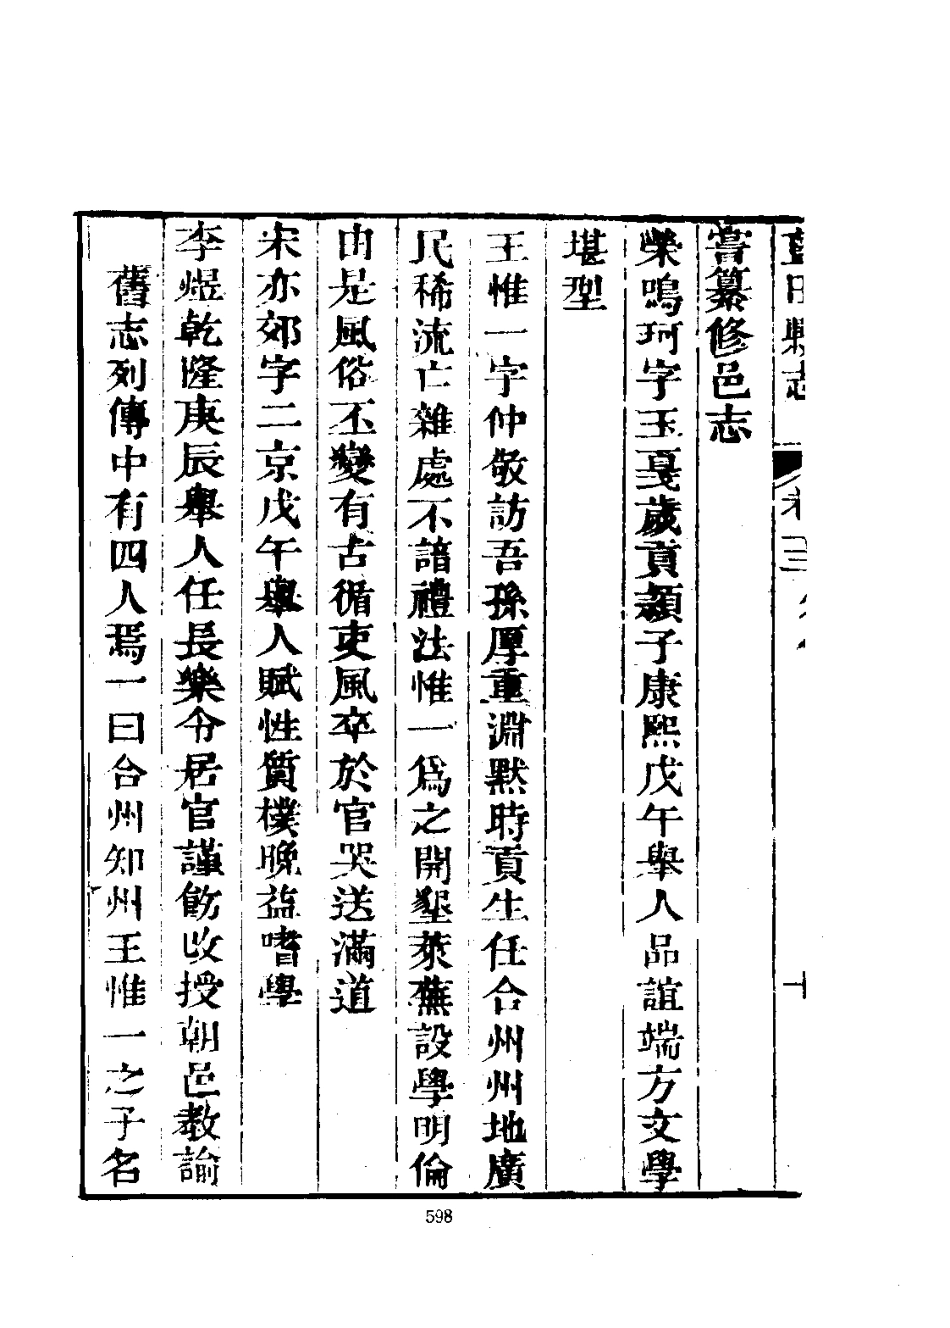 藍田縣志 卷三 十
嘗纂修邑志
榮鳴珂字玉戛歲貢顙子康熙戊午舉人品誼端方文學
堪型
王惟一字仲敬訪吾孫厚重淵默時貢生任合州州地廣
民稀流亡雜處不諳禮法惟一爲之開墾萊蕪設學明倫
由是風俗丕變有古循吏風卒於官哭送滿道
宋亦郊字二京戊午舉人賦性質樸晚益嗜學
李煜乾隆庚辰舉人任長樂令居官謹飭改授朝邑教諭
舊志列傳中有四人焉一曰合州知州王惟一之子名
598